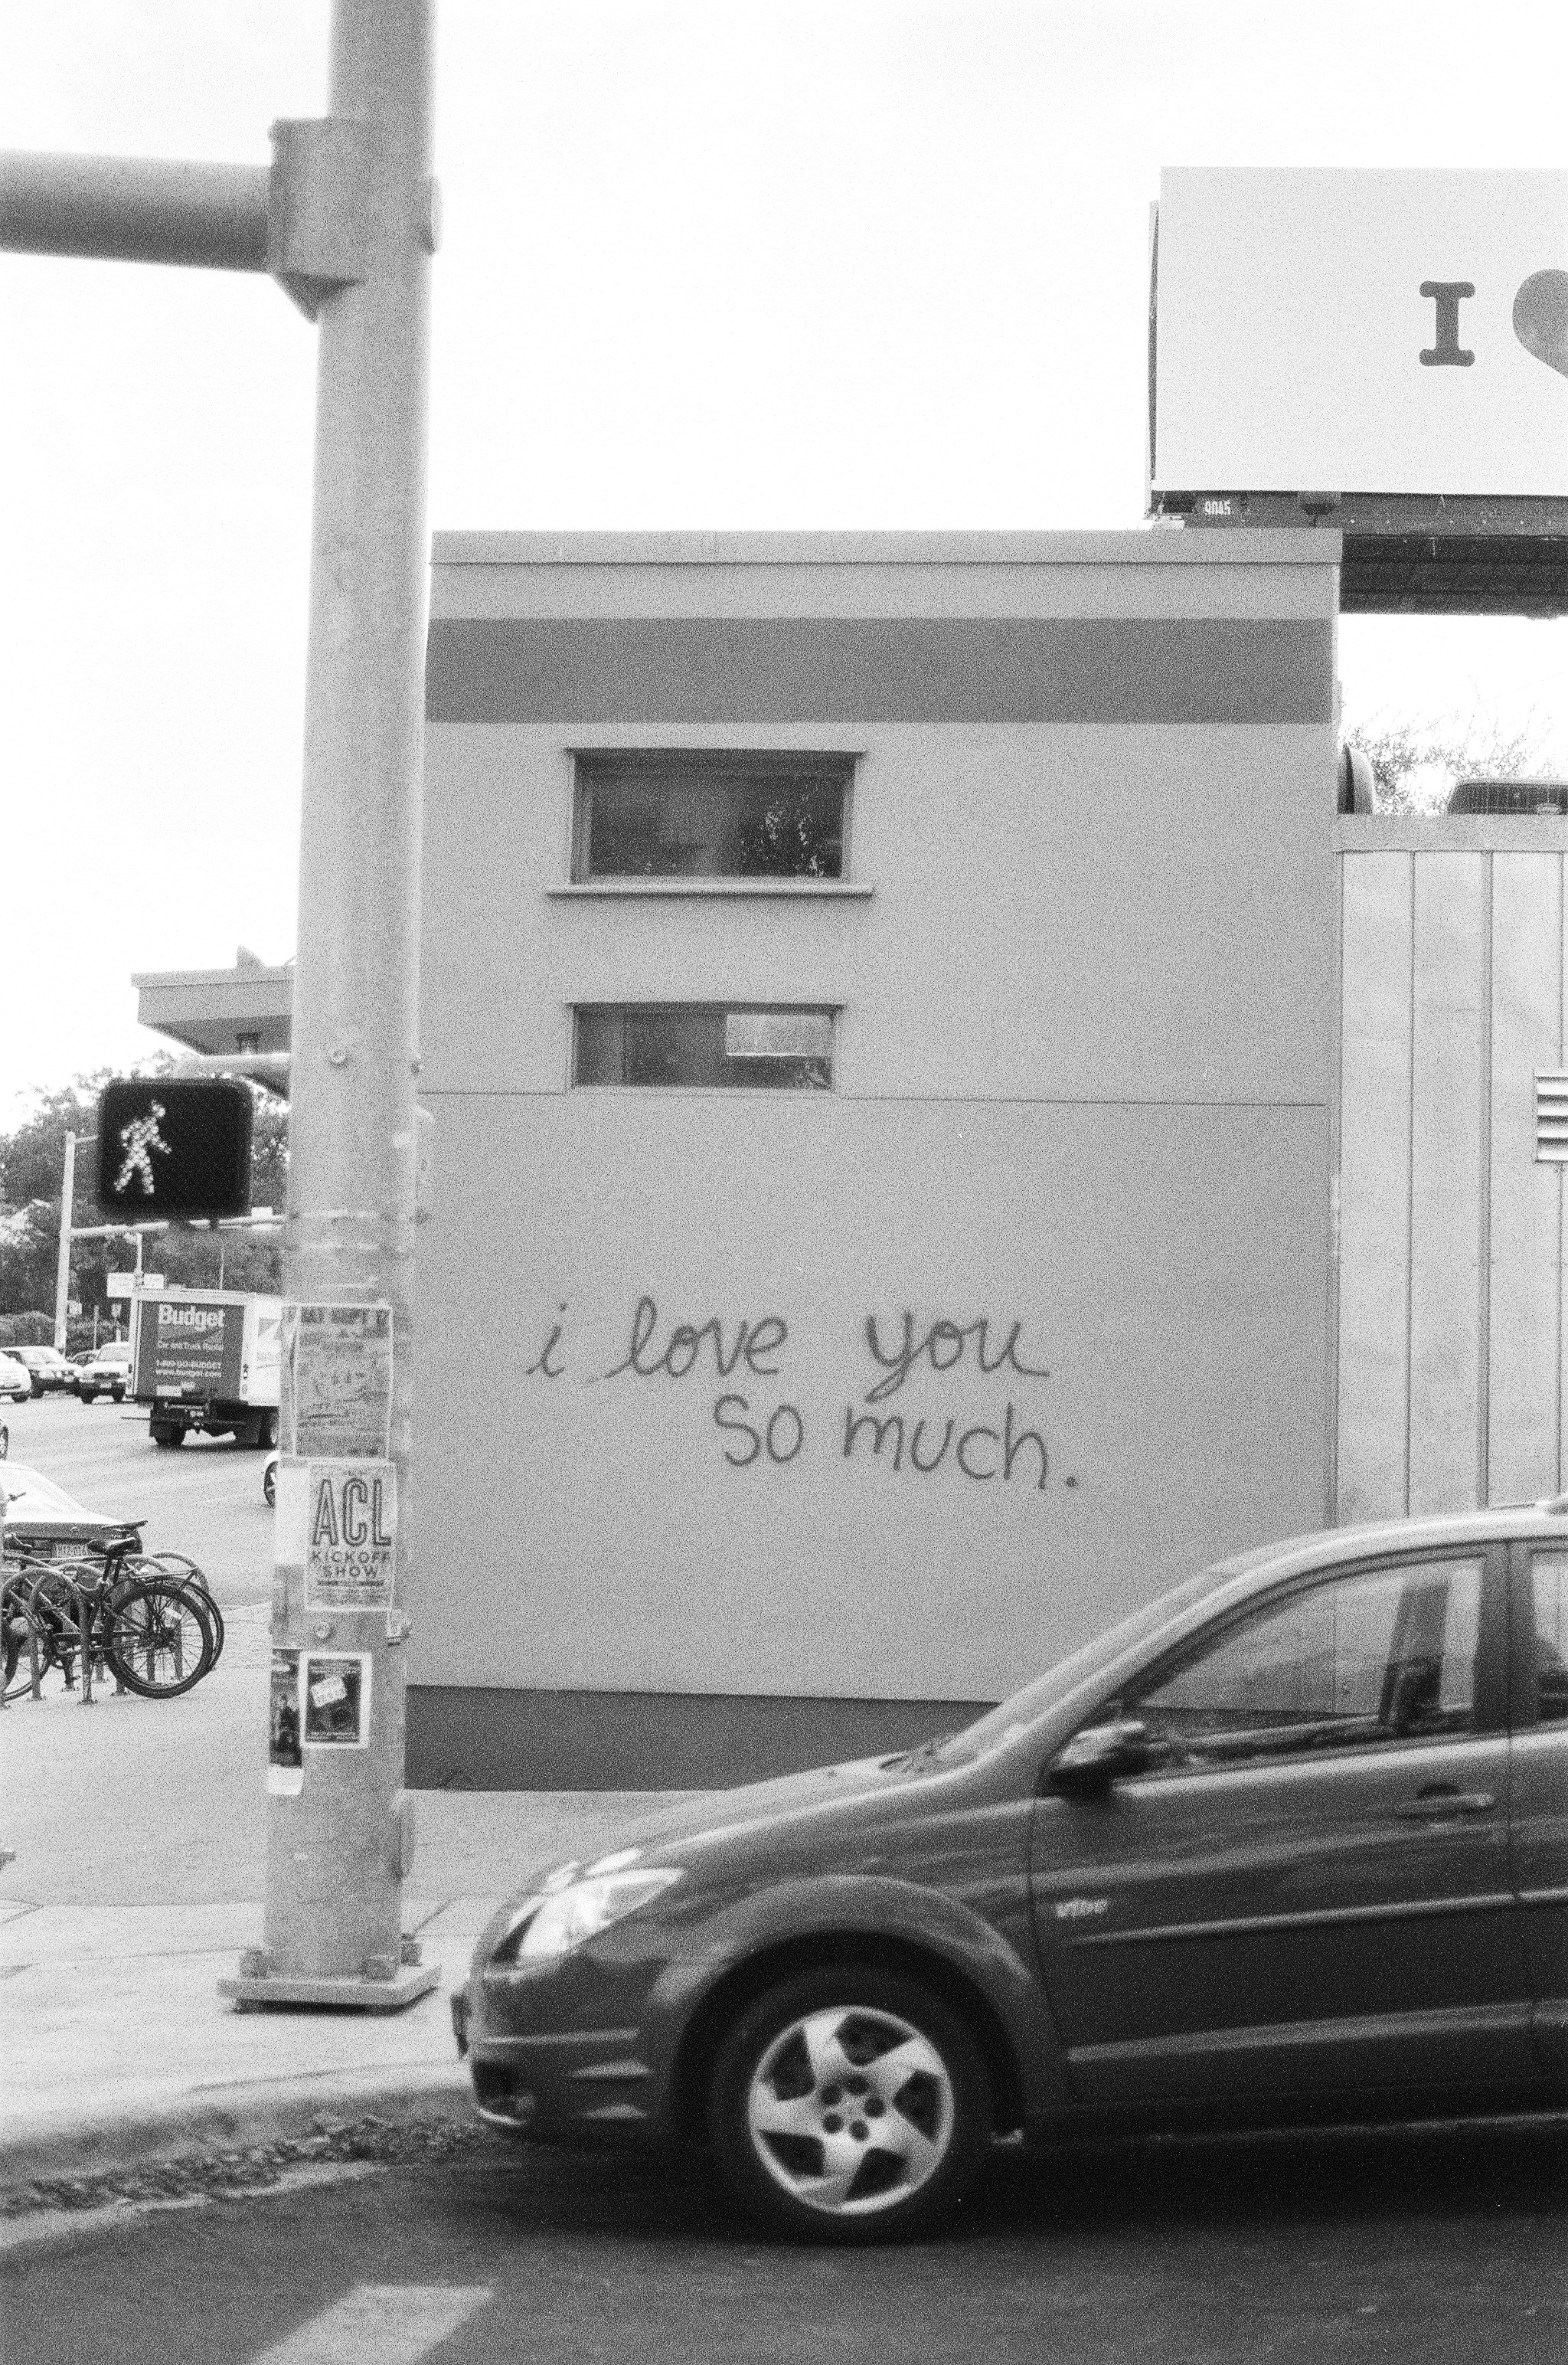 I
9045
Budget
Car and Truck Rental
1-800-GO-BUDGET
www.budget.com
i love you
so much.
ACL
KICKOFF
SHOW
vibe